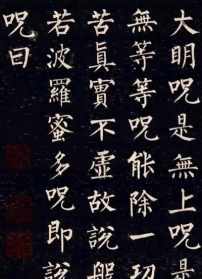 大明咒是無上咒是
無等等咒能除一切
苦真實不虛故說般
若波羅蜜多咒即說
咒曰